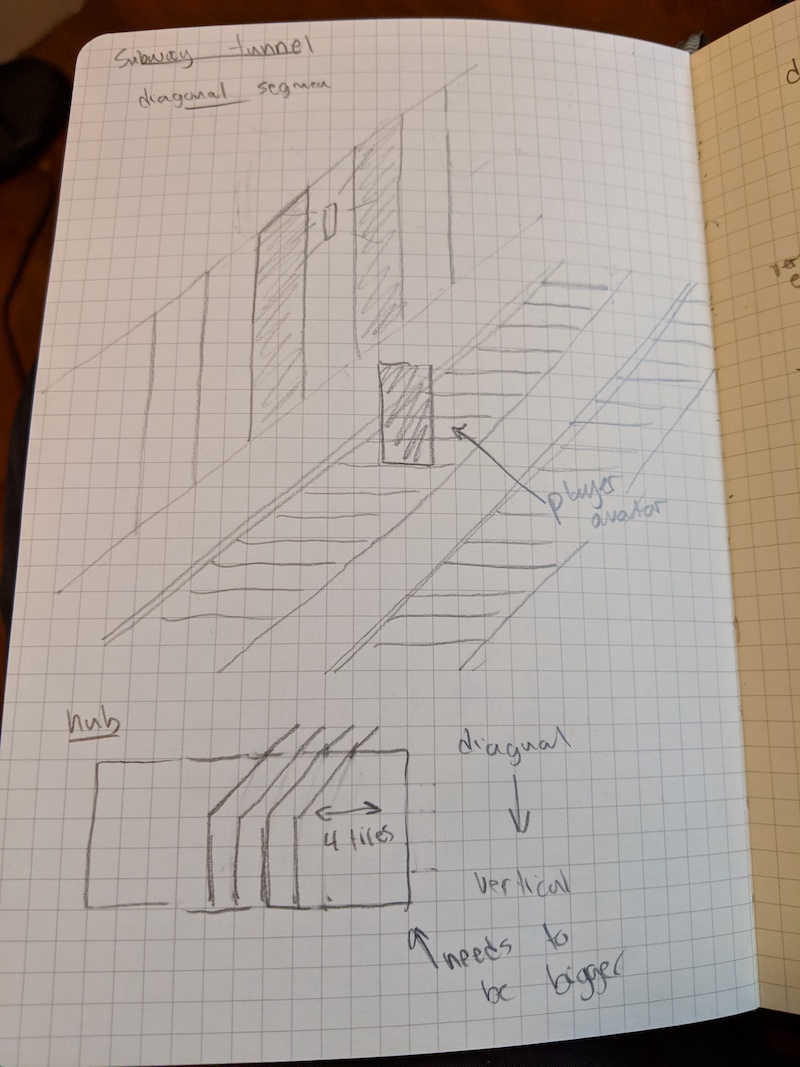 Subway tunnel
diagonal segmen
player
avatar
hub
4 tiles
diagnal
vertical
needs to
be bigger